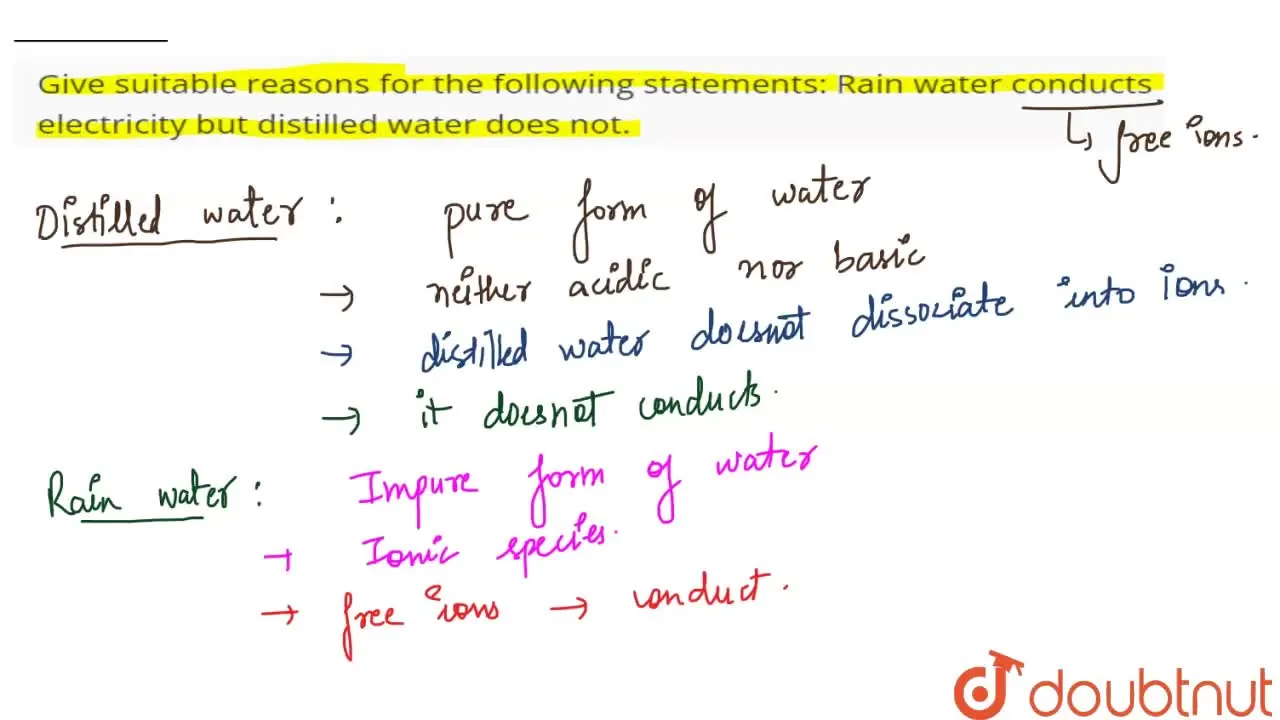 Give suitable reasons for the following statements: Rain water conducts
electricity but distilled water does not.
↳ free ions.
Distilled water : pure form of water
→ neither acidic nor basic
→ distilled water doesnot dissociate into ions.
→ it doesnot conducts.
Rain water : Impure form of water
→ Ionic species.
→ free ions → conduct.
doubtnut